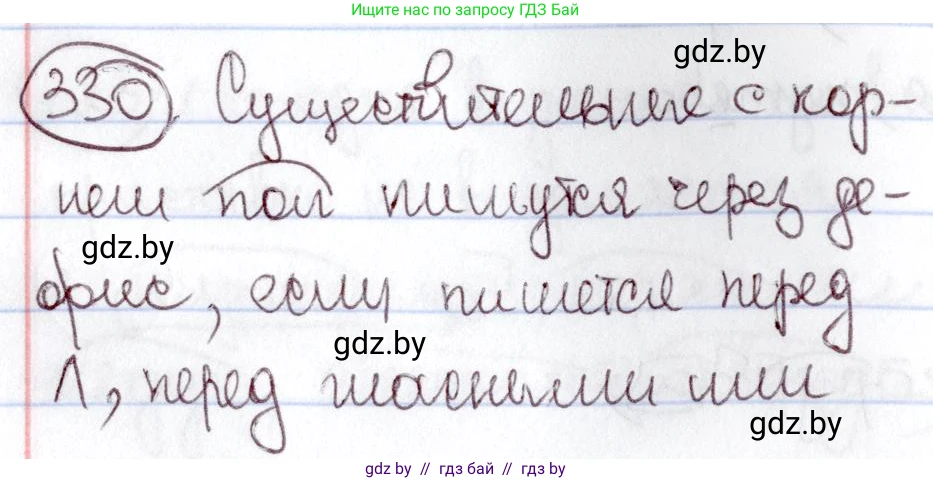 Ищите нас по запросу ГДЗ Бай
gdz.by
330. Существительные с кор-
нем пол пишутся через де-
gdz.by
фис, если пишется перед
gdz.by
л, перед гласными или
gdz.by
gdz by // гдз бай // gdz by